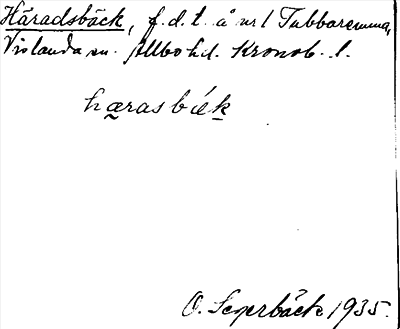 Häradsbäck, f. d. t. å nr 1 Tubbaremma,
Vislanda sn. Allbo hd. Kronob. l.
hærasbɛ́k
O. Segerbäck 1935.